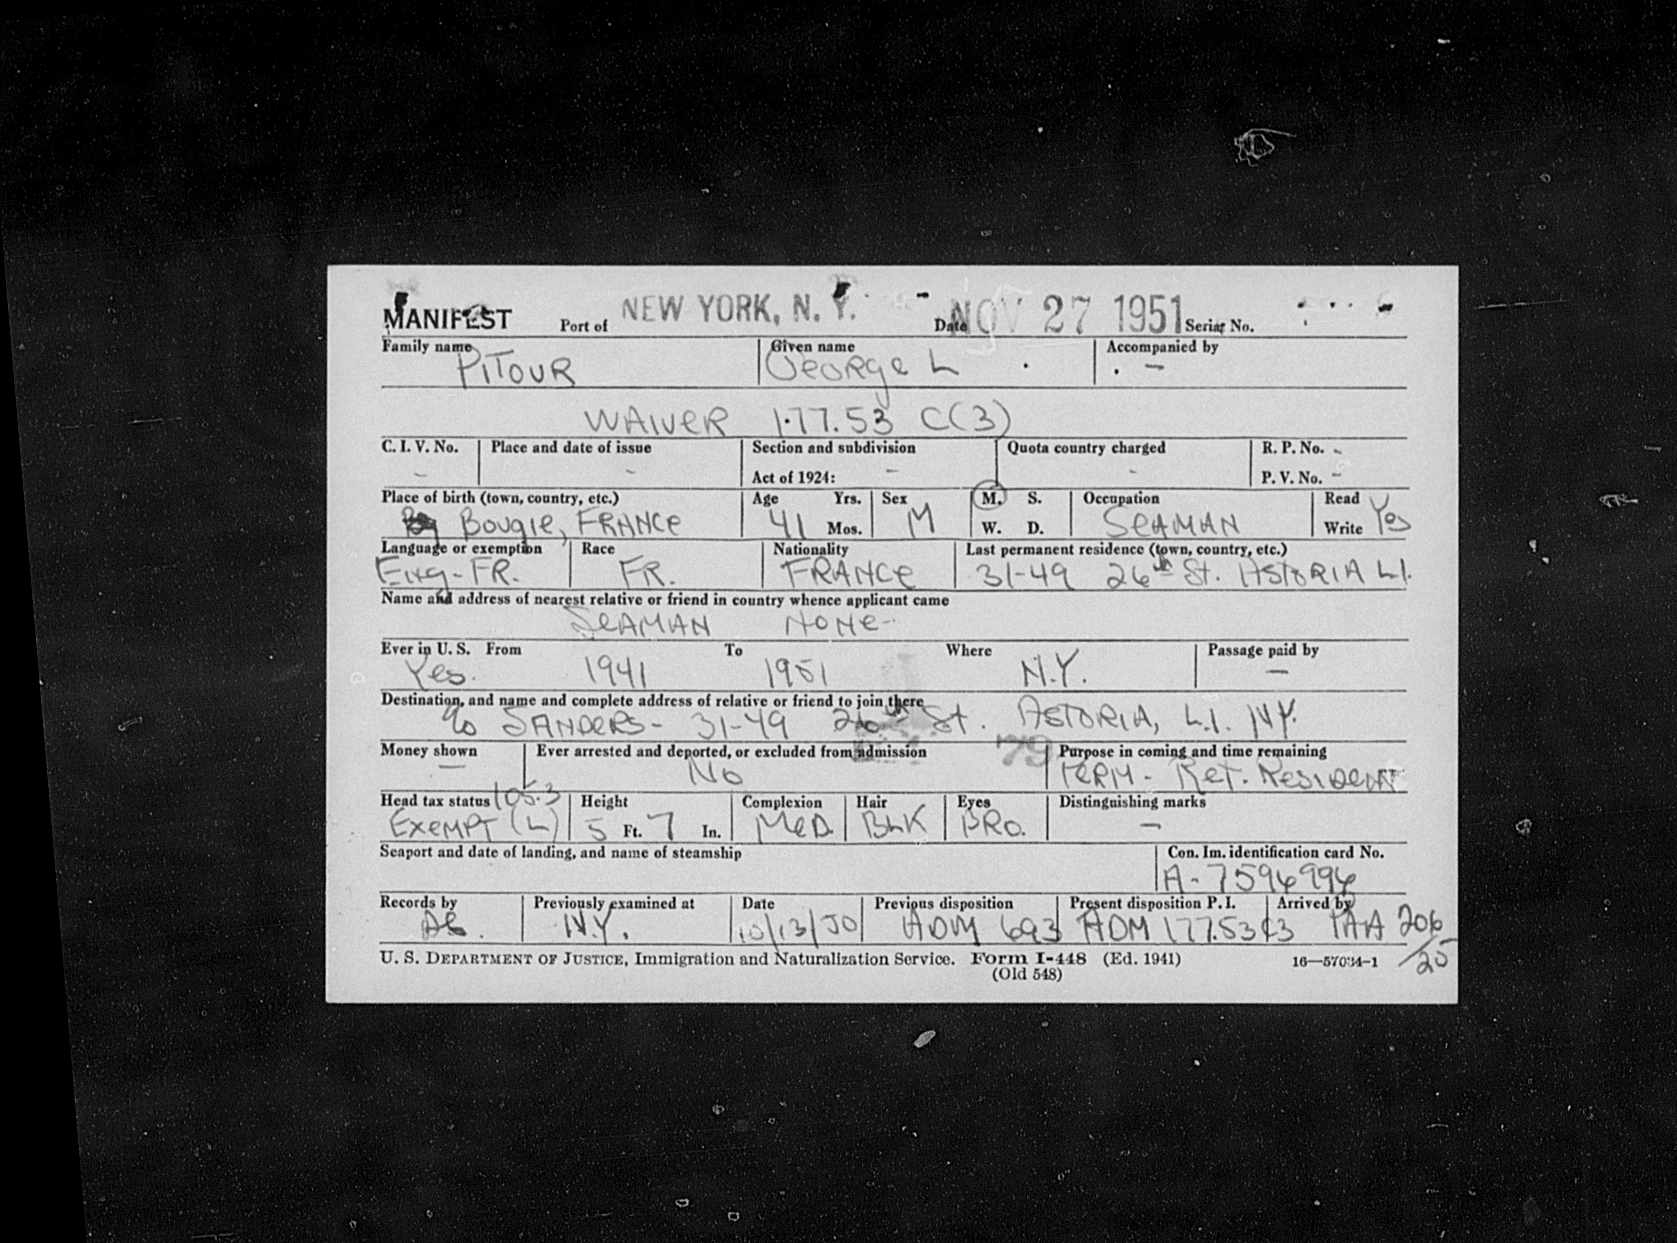 MANIFEST Port of NEW YORK, N. Y. Date NOV 27 1951 Serial No.
Family name PITOUR Given name George L Accompanied by —
WAIVER 1.77.53 C(3)
C. I. V. No. Place and date of issue Section and subdivision Quota country charged R. P. No. -
- - Act of 1924: - - P. V. No. -
Place of birth (town, country, etc.) Age Yrs. Sex M. S. Occupation Read
Bougie, FRANCE 41 Mos. M W. D. SEAMAN Write Yes
Language or exemption Race Nationality Last permanent residence (town, country, etc.)
Eng-FR. FR. FRANCE 31-49 26th St. ASTORIA L.I.
Name and address of nearest relative or friend in country whence applicant came
SEAMAN NONE-
Ever in U. S. From To Where Passage paid by
Yes. 1941 1951 N.Y. —
Destination, and name and complete address of relative or friend to join there
c/o SANDERS - 31-49 26th St. ASTORIA, L.I. N.Y.
Money shown Ever arrested and deported, or excluded from admission Purpose in coming and time remaining
— No PERM - RET. RESIDENT
Head tax status 105.3 Height Complexion Hair Eyes Distinguishing marks
EXEMPT (L) 5 Ft. 7 In. MED. BLK BRO. —
Seaport and date of landing, and name of steamship Con. Im. identification card No.
A-7596996
Records by Previously examined at Date Previous disposition Present disposition P. I. Arrived by
N.Y. 10/13/50 ADM 693 ADM 177.53 C3 PAA 206/25
U. S. DEPARTMENT OF JUSTICE, Immigration and Naturalization Service. Form I-448 (Ed. 1941) 16—57034-1
(Old 548)